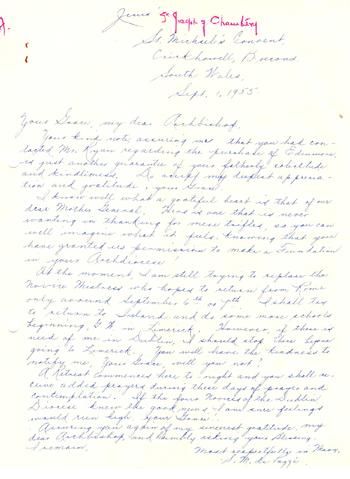 Jesus
St Joseph of Chambéry
St. Michael's Convent,
Crickhowell, Brecons
South Wales.
Sept. 1, 1955
Your Grace, my dear Archbishop,
Your kind note, assuring me that you had con-
tacted Mr. Ryan regarding the purchase of
is just another guarantee of your fatherly solicitude
and kindliness. Do accept my deepest apprecia-
tion and gratitude, your Grace.
I know well what a grateful heart is that of our
dear Mother General. Hers is one that is never
wanting in thanking for mere trifles, so you can
well imagine what it feels knowing that you
have granted us permission to make a Foundation
in your Archdiocese!
At the moment, I am still trying to replace the
Novice Mistress who hopes to return from Rome
only around September 6th or 7th. I shall try
to return to Ireland and do some more schools
beginning, G.W. in Limerick. However, if there is
need of me in Dublin, I should stop there before
going to Limerick. You will have the kindness to
notify me, Your Grace, will you not?
A Retreat commences here to-night and you shall re-
ceive added prayers during these days of prayer and
contemplation. If the four Novices of the Dublin
Diocese knew the good news, I am sure feelings
would run high, your Grace!
Assuring you again of my sincerest gratitude, my
dear Archbishop, and humbly asking your blessing
I remain,
Most respectfully in Xto,
S. M. de Pazzi